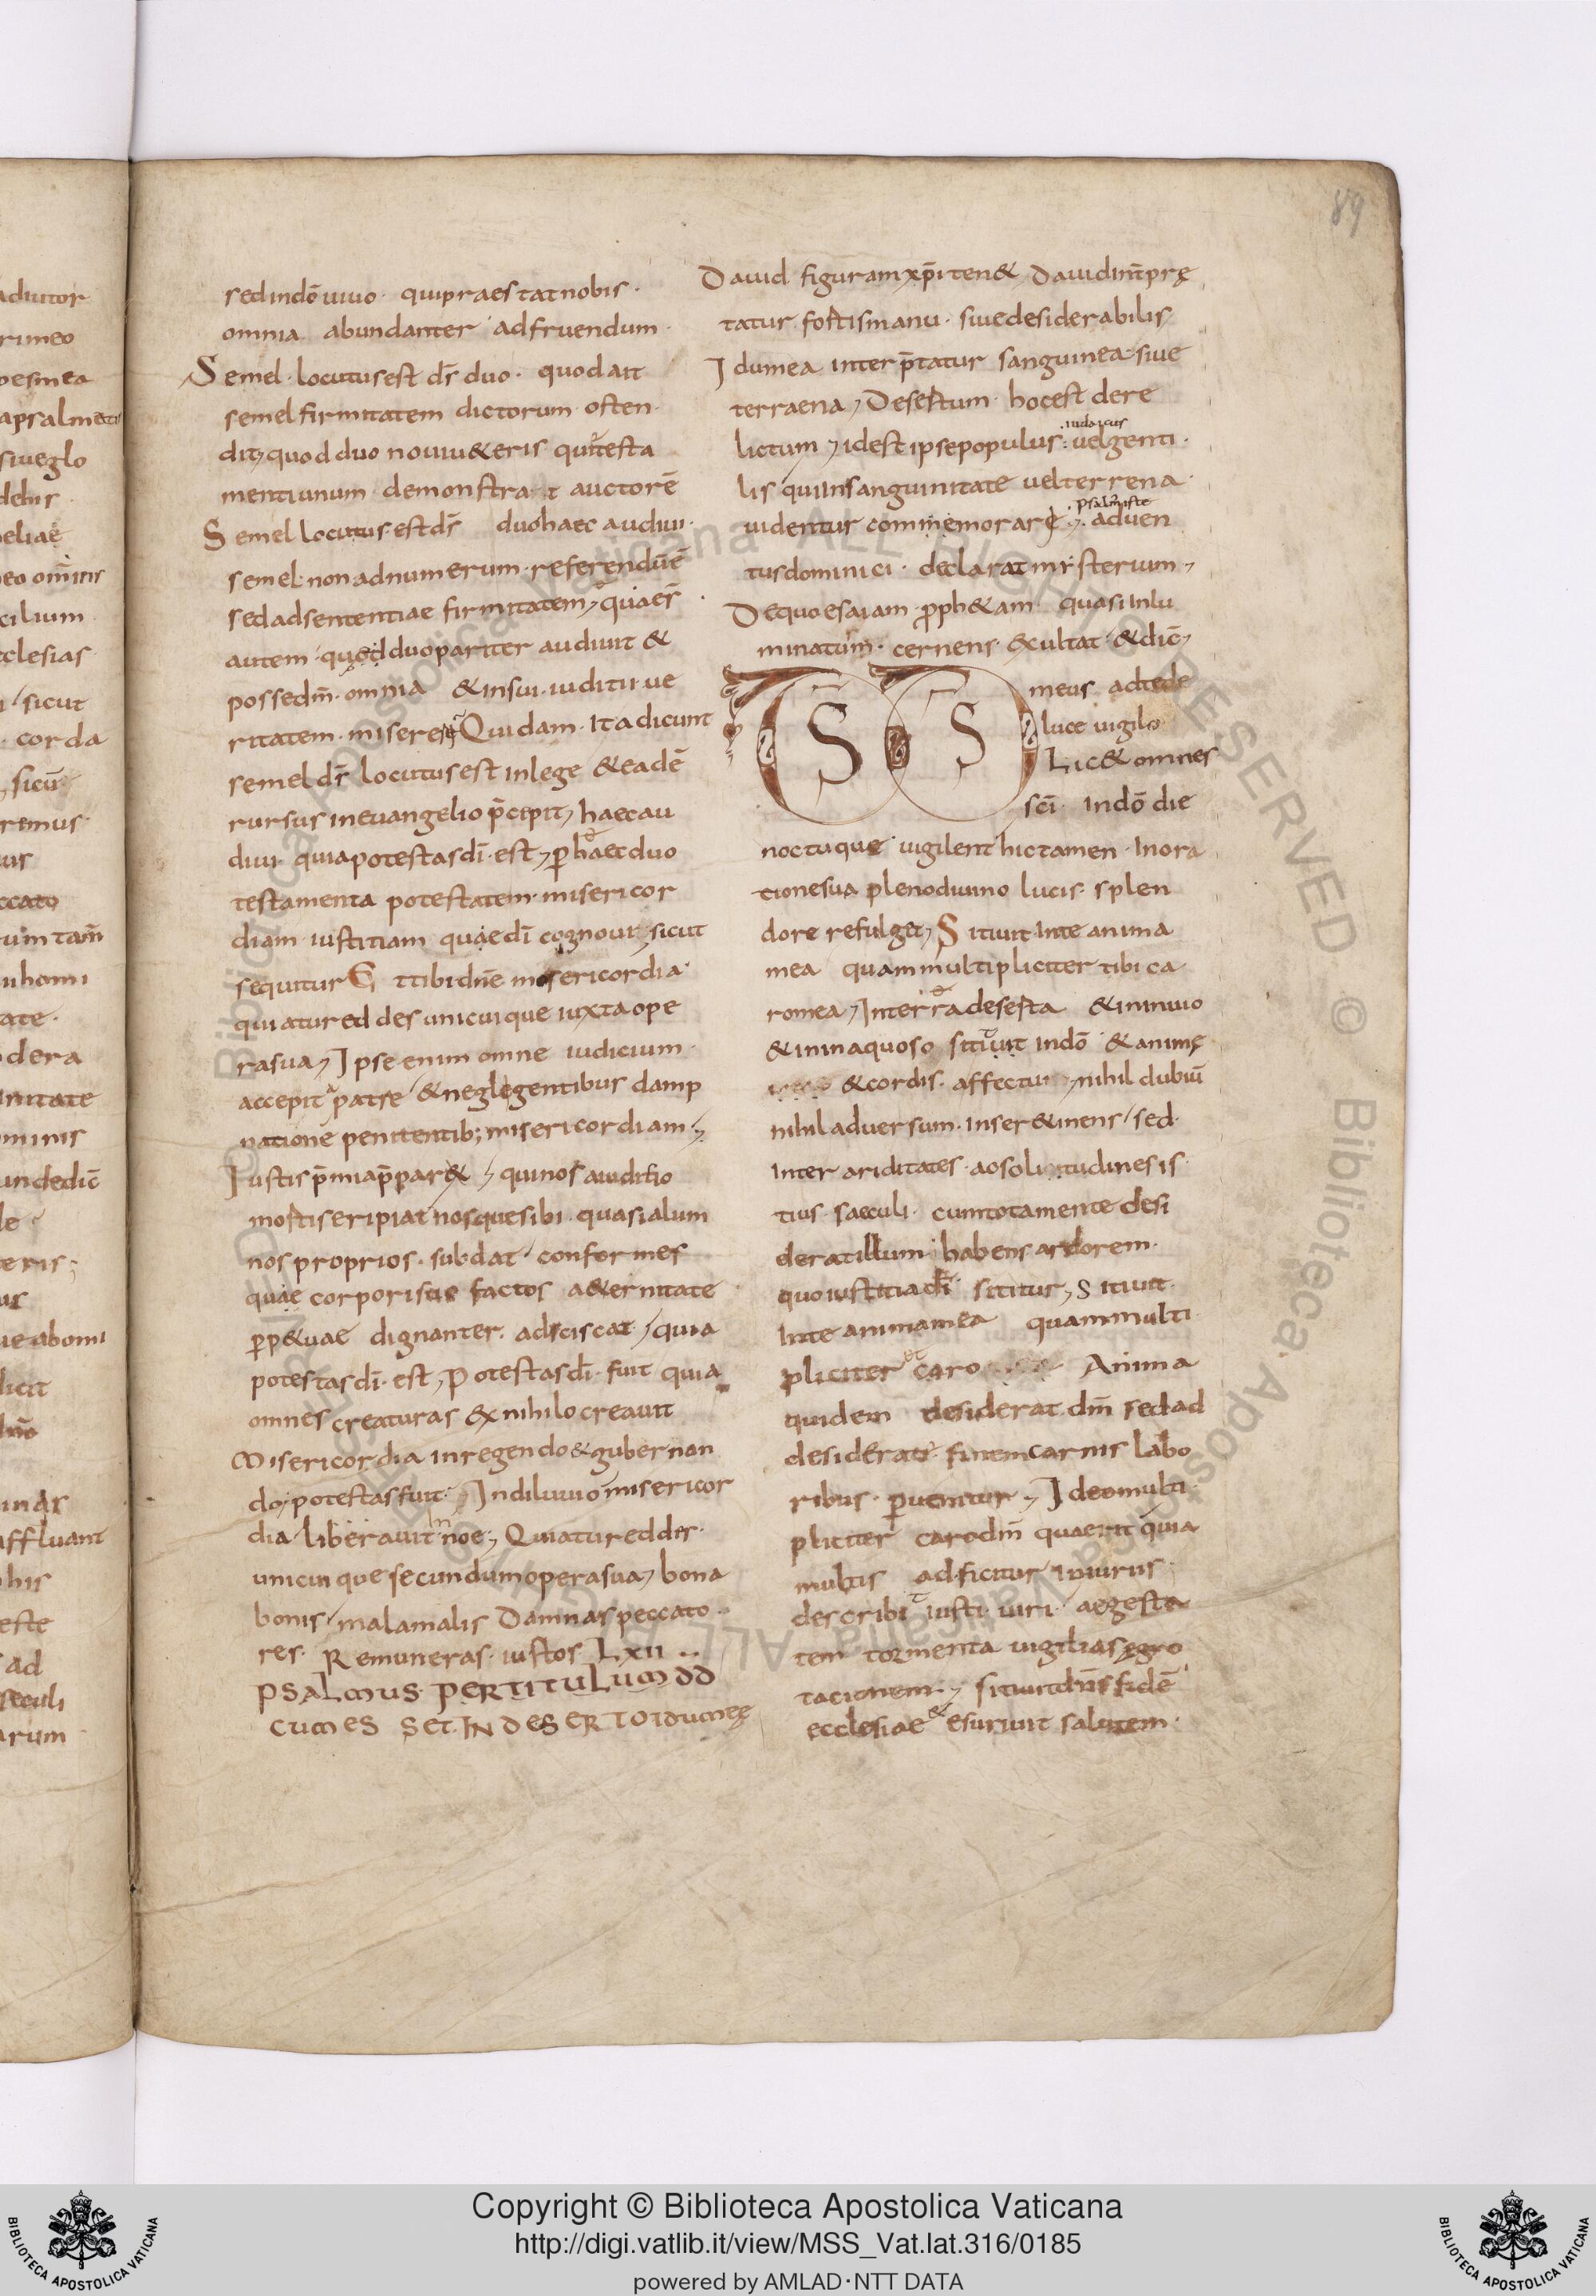 89
sed in dō uiuo · qui praestat nobis ·
omnia abundanter ad fruendum ·
Semel · locutus est d̄s duo · quod ait
semel firmitatem dictorum · osten
dit, quod duo noui ueteris qui testa
menti unum demonstrat auctorē
Semel locutus est d̄s duo haec audiui ·
semel · non ad numerum · referendū ē
sed ad sententiae firmitatem,
autem · quod duo pariter audiuit &
possedm̄ · omnia & in sui · iuditii · ue
ritatem · Quidam · Ita dicunt
semel d̄s locutus est in lege & eadē
rursus in euangelio p̄cepit, haec au
diui quia potestas dī · est, ꝑ haec duo
testamenta potestatem · misericor
diam · iustitiam quae dī cognouit, sicut
sequitur Et tibi dn̄e misericordia ·
quia tu reddes unicuique iuxta ope
ra sua, Ipse enim omne iudicium ·
accepit a patre & neglegentibus damp
natione penitentib; misericordiam,
Iustis p̄mia p̄par&, qui nos auditio
mortis eripiat nosque sibi · quasi alum
nos proprios · subdat / conformes
quae corporis sui factos a&ernitate
ꝑp&uae dignanter · adsciscat / quia
potestas dī · est, Potestas dī · fuit quia
omnes creaturas ex nihilo creauit
Misericordia in regendo & gubernan
do, potestas fuit · In diluuio misericor
dia / liberauit noe, Quia tu reddes ·
unicuique secundum opera sua, bona
bonis / mala malis Damnas peccato
res · Remuneras · iustos LXII
PSALMUS · PER TITULUM DD
CUM ESSET · IN DESERTO IDUMEĘ
Dauid figuram xp̄i ten& Dauid int̄prę
tatur fortis manu · siue desiderabilis
Idumea interp̄tatur sanguinea · siue
terraena, Desertum · hoc est dere
iudaicus
lictum, id est ipse populus : uel genti ·
lis qui in sanguinitate uel terrena ·
psalmiste
uidentur commemorare, aduen
tus dominici · declarat misterium,
De quo esaiam · ꝓph&am · quasi inlu
minatum · cernens · exultat · & dic̄,
DS DS meus ad te de
luce uigilo
Lic& omnes
sc̄i · in dō die
noctuque uigilent hic tamen · In ora
tione sua pleno diuino lucis · splen
dore refulget, Sitiuit · in te anima
mea quam multipliciter tibi ca
ro mea, In terra deserta & in inuio
& in inaquoso sitiuit in dō & animę
& cordis · affectu, nihil dubiū
nihil aduersum · in se r&inens / sed ·
inter ariditates · ac solitudines is
tius · saeculi · cum tota mente desi
derat illum · habens ardorem ·
quo iustitia dī sititur, Sitiuit ·
In te anima mea quam multi
pliciter et caro Anima
quidem desiderat dm̄ sed ad
desiderati · finem carnis labo
ribus · ꝑuenitur, Ideo multi ·
pliciter caro dm̄ quaerit quia
multis adficitur iniuriis ·
describit iusti · uiri · aegesta
tem tormenta uigilias ęgro
tacionem · sitiuit dn̄s fidē
ecclesiae & esuriuit salutem ·
Copyright © Biblioteca Apostolica Vaticana
http://digi.vatlib.it/view/MSS_Vat.lat.316/0185
powered by AMLAD·NTT DATA
BIBLIOTECA APOSTOLICA VATICANA
BIBLIOTECA APOSTOLICA VATICANA